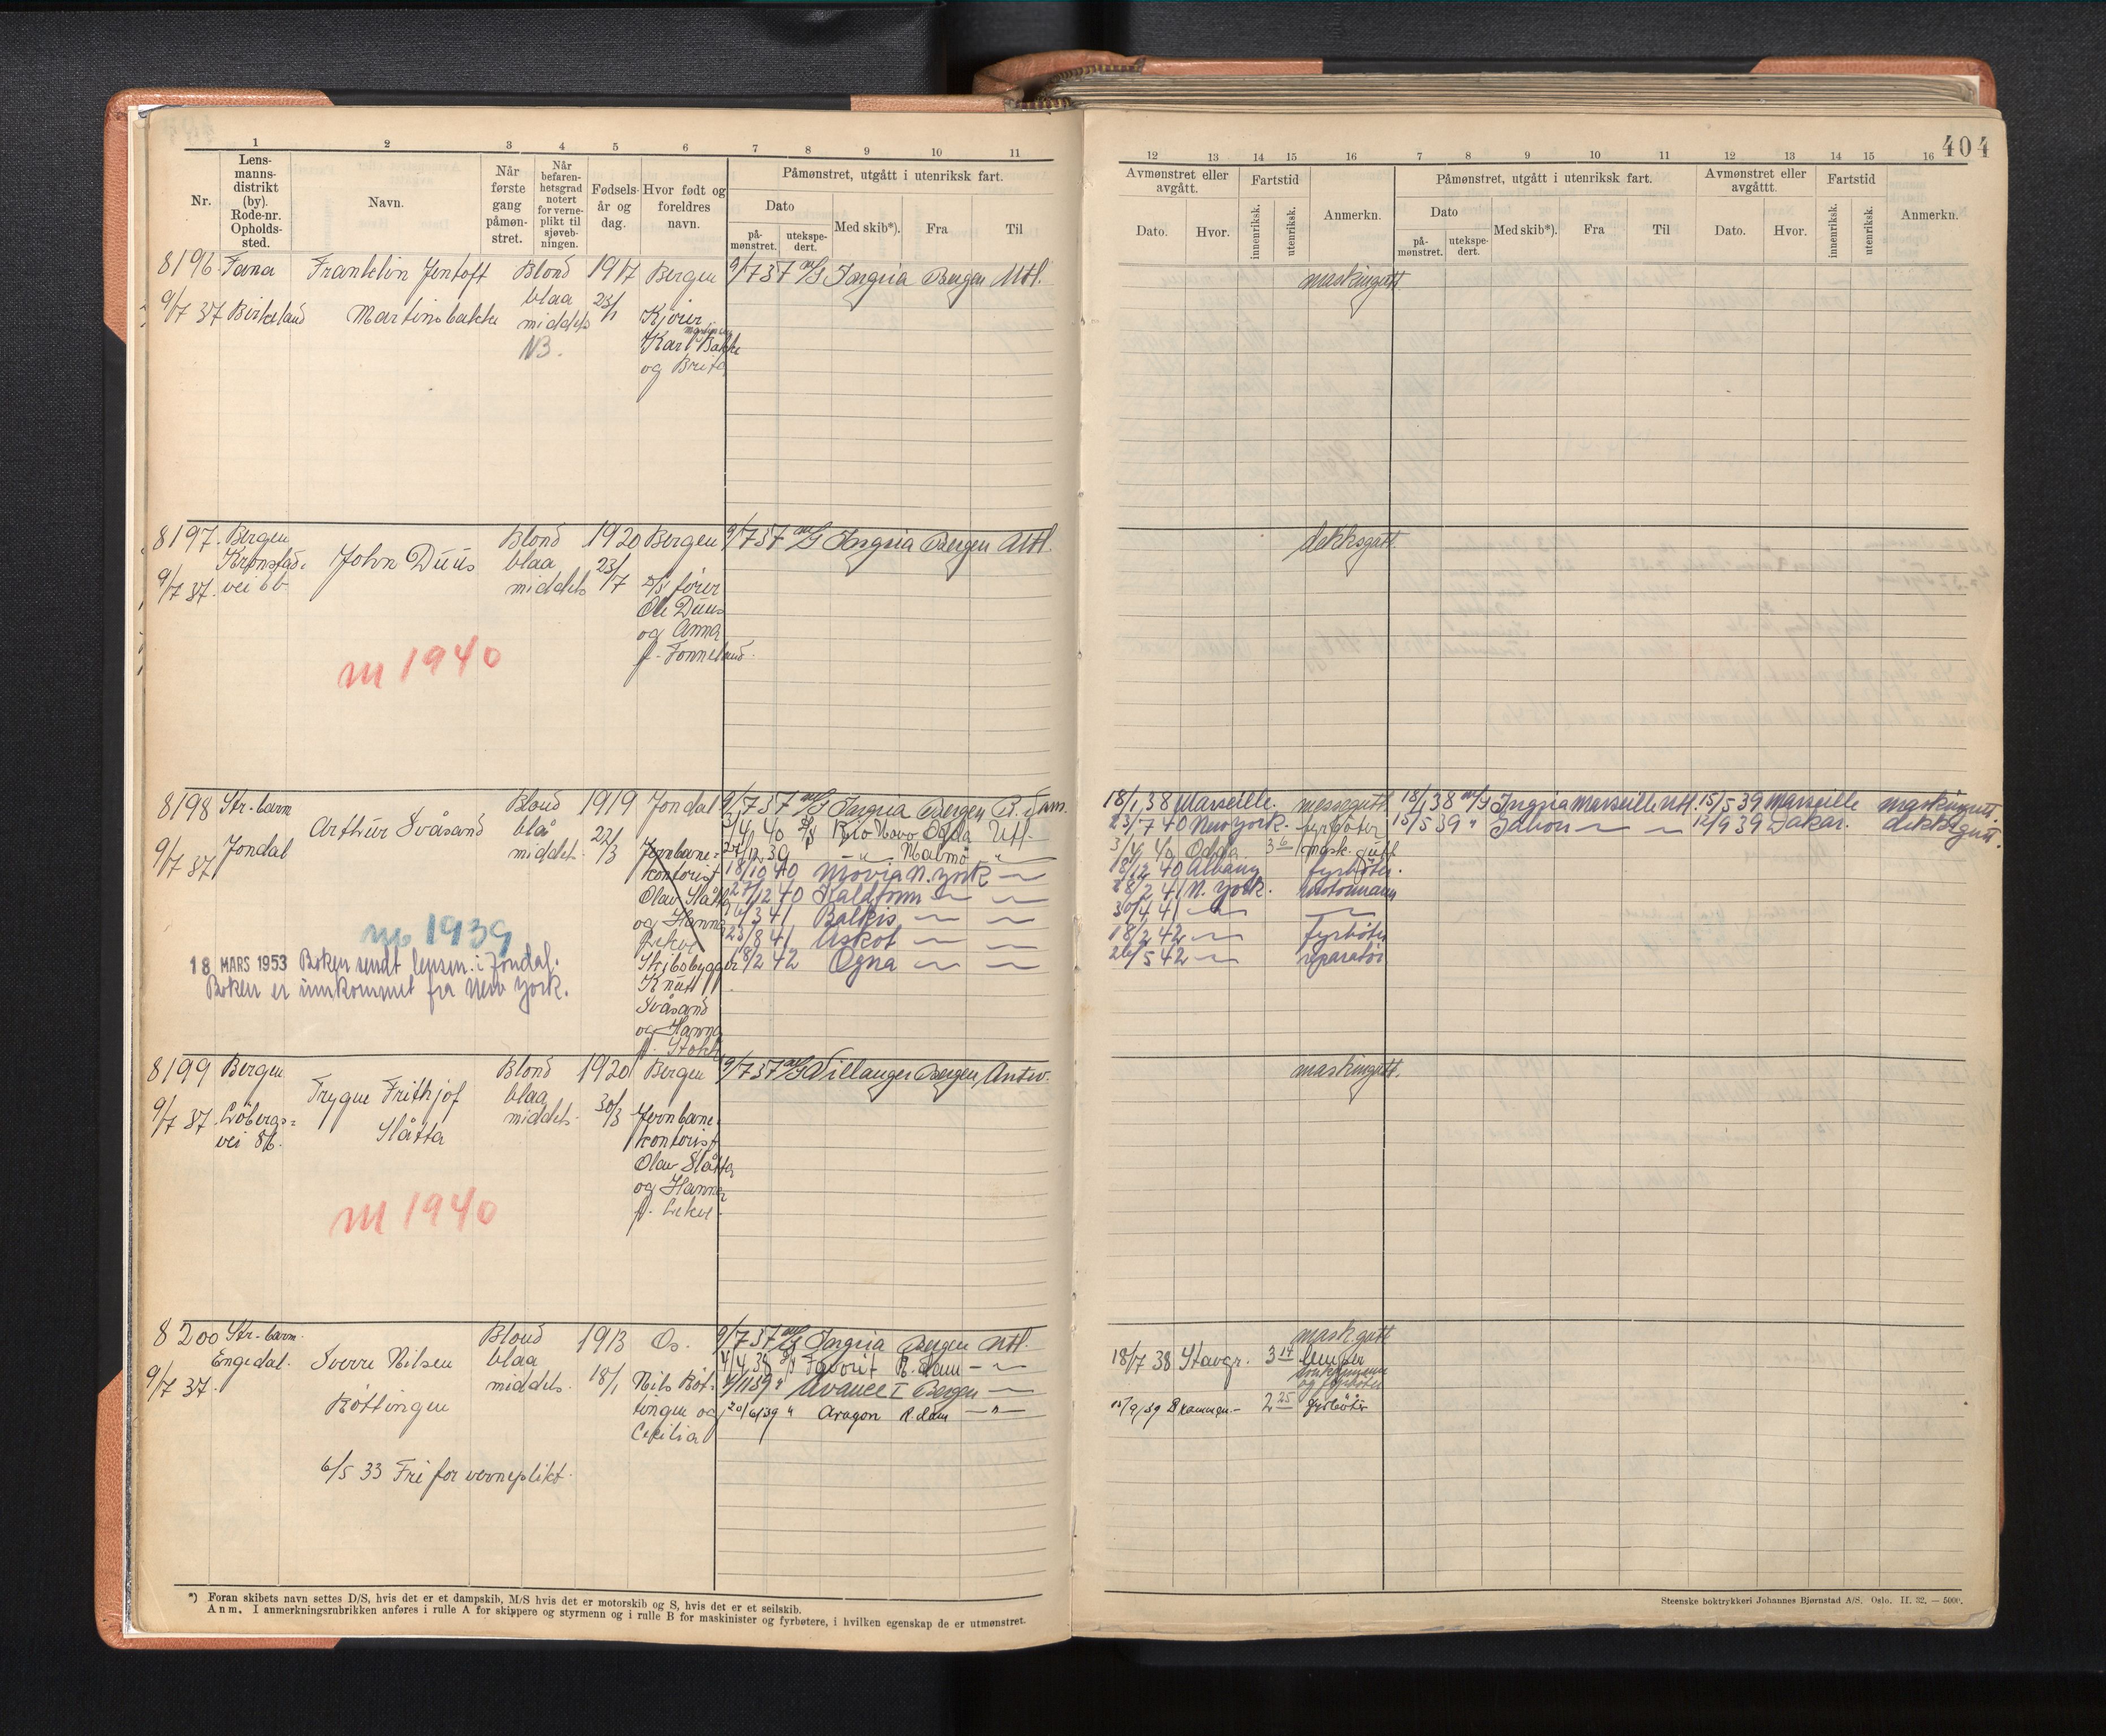 404
1 2 3 4 5 6 7 8 9 10 11
Nr.
Lens-
manns-
distrikt
(by).
Rode-nr.
Opholds-
sted.
Navn.
Når
første
gang
påmøn-
stret.
Når
befaren-
hetsgrad
notert
for verne-
plikt til
sjøveb-
ningen.
Fødsels-
år og
dag.
Hvor født og
foreldres
navn.
Påmønstret, utgått i utenriksk fart.
Dato
på-
mønstret.
utekspe-
dert.
Med skib*).
Fra
Til
12 13 14 15 16 7 8 9 10 11 12 13 14 15 16
Avmønstret eller
avgått.
Dato.
Hvor.
Fartstid
innenriksk.
utenriksk.
Anmerkn.
Påmønstret, utgått i utenriksk fart.
Dato
på-
mønstret.
utekspe-
dert.
Med skib*).
Fra
Til
Avmønstret eller
avgåttt.
Dato.
Hvor.
Fartstid
innenriksk.
utenriksk.
Anmerkn.
8196 Fana Franklin Jentoft Blond 1917 Bergen 9/7 37 m/S Ingria Bergen Utl. maskingutt
9/7 37 Birkeland Martinsbakke blaa 23/1 Kjører
middels
Karl Bakke
NB. og Brita
8197. Bergen John Duus Blond 1920 Bergen 9/7 37 m/S Ingria Bergen Utl. dekksgutt
blaa 23/7
9/7 37. vei 6b. middels fører
Ole Duus
og Anna
f. Fonneland.
m 1940
8198 Str-barm Arthur Svåsand Blond 1919 Jondal 9/7 37 m/S Ingria Bergen R.dam. 18/1 38 Marseille. messegutt 18/1 38 m/S Ingria Marseille Utl. 15/5 39 Marseille maskingutt.
blå 22/3 3/4 40 Odda Utl 23/7 40 New York. fyrbøter 15/5 39 " 12/9 39 Dakar. dekksgutt.
9/7 37 Jondal middels Jernbane= 39 Malmø 3/4 40 Odda 3 6 mask.gutt
kontorist 18/10 40 Movia N. York 18/12 40 Albany fyrbøter.
Olav Slåtta 27/12 40 Kaldfonn 28/2 41 N. York. motormann
og Hanna /3 41 Balkis 30/4 41
Lekve 23/8 41 Askot 18/2 42 fyrbøter
Skibsbygger 18/2 42 Ogna 26/5 42 reparatør
Knut
Svåsand
og Hanna
f. Stokk
m 1939
18 MARS 1953 Boken sendt lensm. i Jondal.
Boken er innkommet fra New York.
8199 Bergen Trygve Frithjof Blond 1920 Bergen 9/7 37 m/S Villanger Bergen Antw. maskingutt.
blaa 30/3 Jernbane-
9/7 37. Løbergs= Slåtta middels kontorist
vei 86. Olav Slåtta
og Hanna
f. Lekve.
m 1940
8200 Str-barm. Sverre Nilsen Blond 1913 Os. 9/7 37 m/S Ingria Bergen Utl. maskgutt
Engedal. blaa 4/4 38 D/S Favorit R.dam 18/7 38 Stavgr. 3 14 lemper
9/7 37. Røttingen middels 18/1 Nils Røt- Avance I Bergen og fyrbøter
tingen og 20/6 39 " Aragon R.dam Drammen 2 25 fyrbøter
Cecilia
6/5 33 Fri for verneplikt.
*) Foran skibets navn settes D/S, hvis det er et dampskib, M/S hvis det er motorskib og S, hvis det er et seilskib.
Anm. I anmerkningsrubrikken anføres i rulle A for skippere og styrmenn og i rulle B for maskinister og fyrbøtere, i hvilken egenskap de er utmønstret.
Steenske boktrykkeri Johannes Bjørnstad A/S. Oslo. II. 32. — 5000.